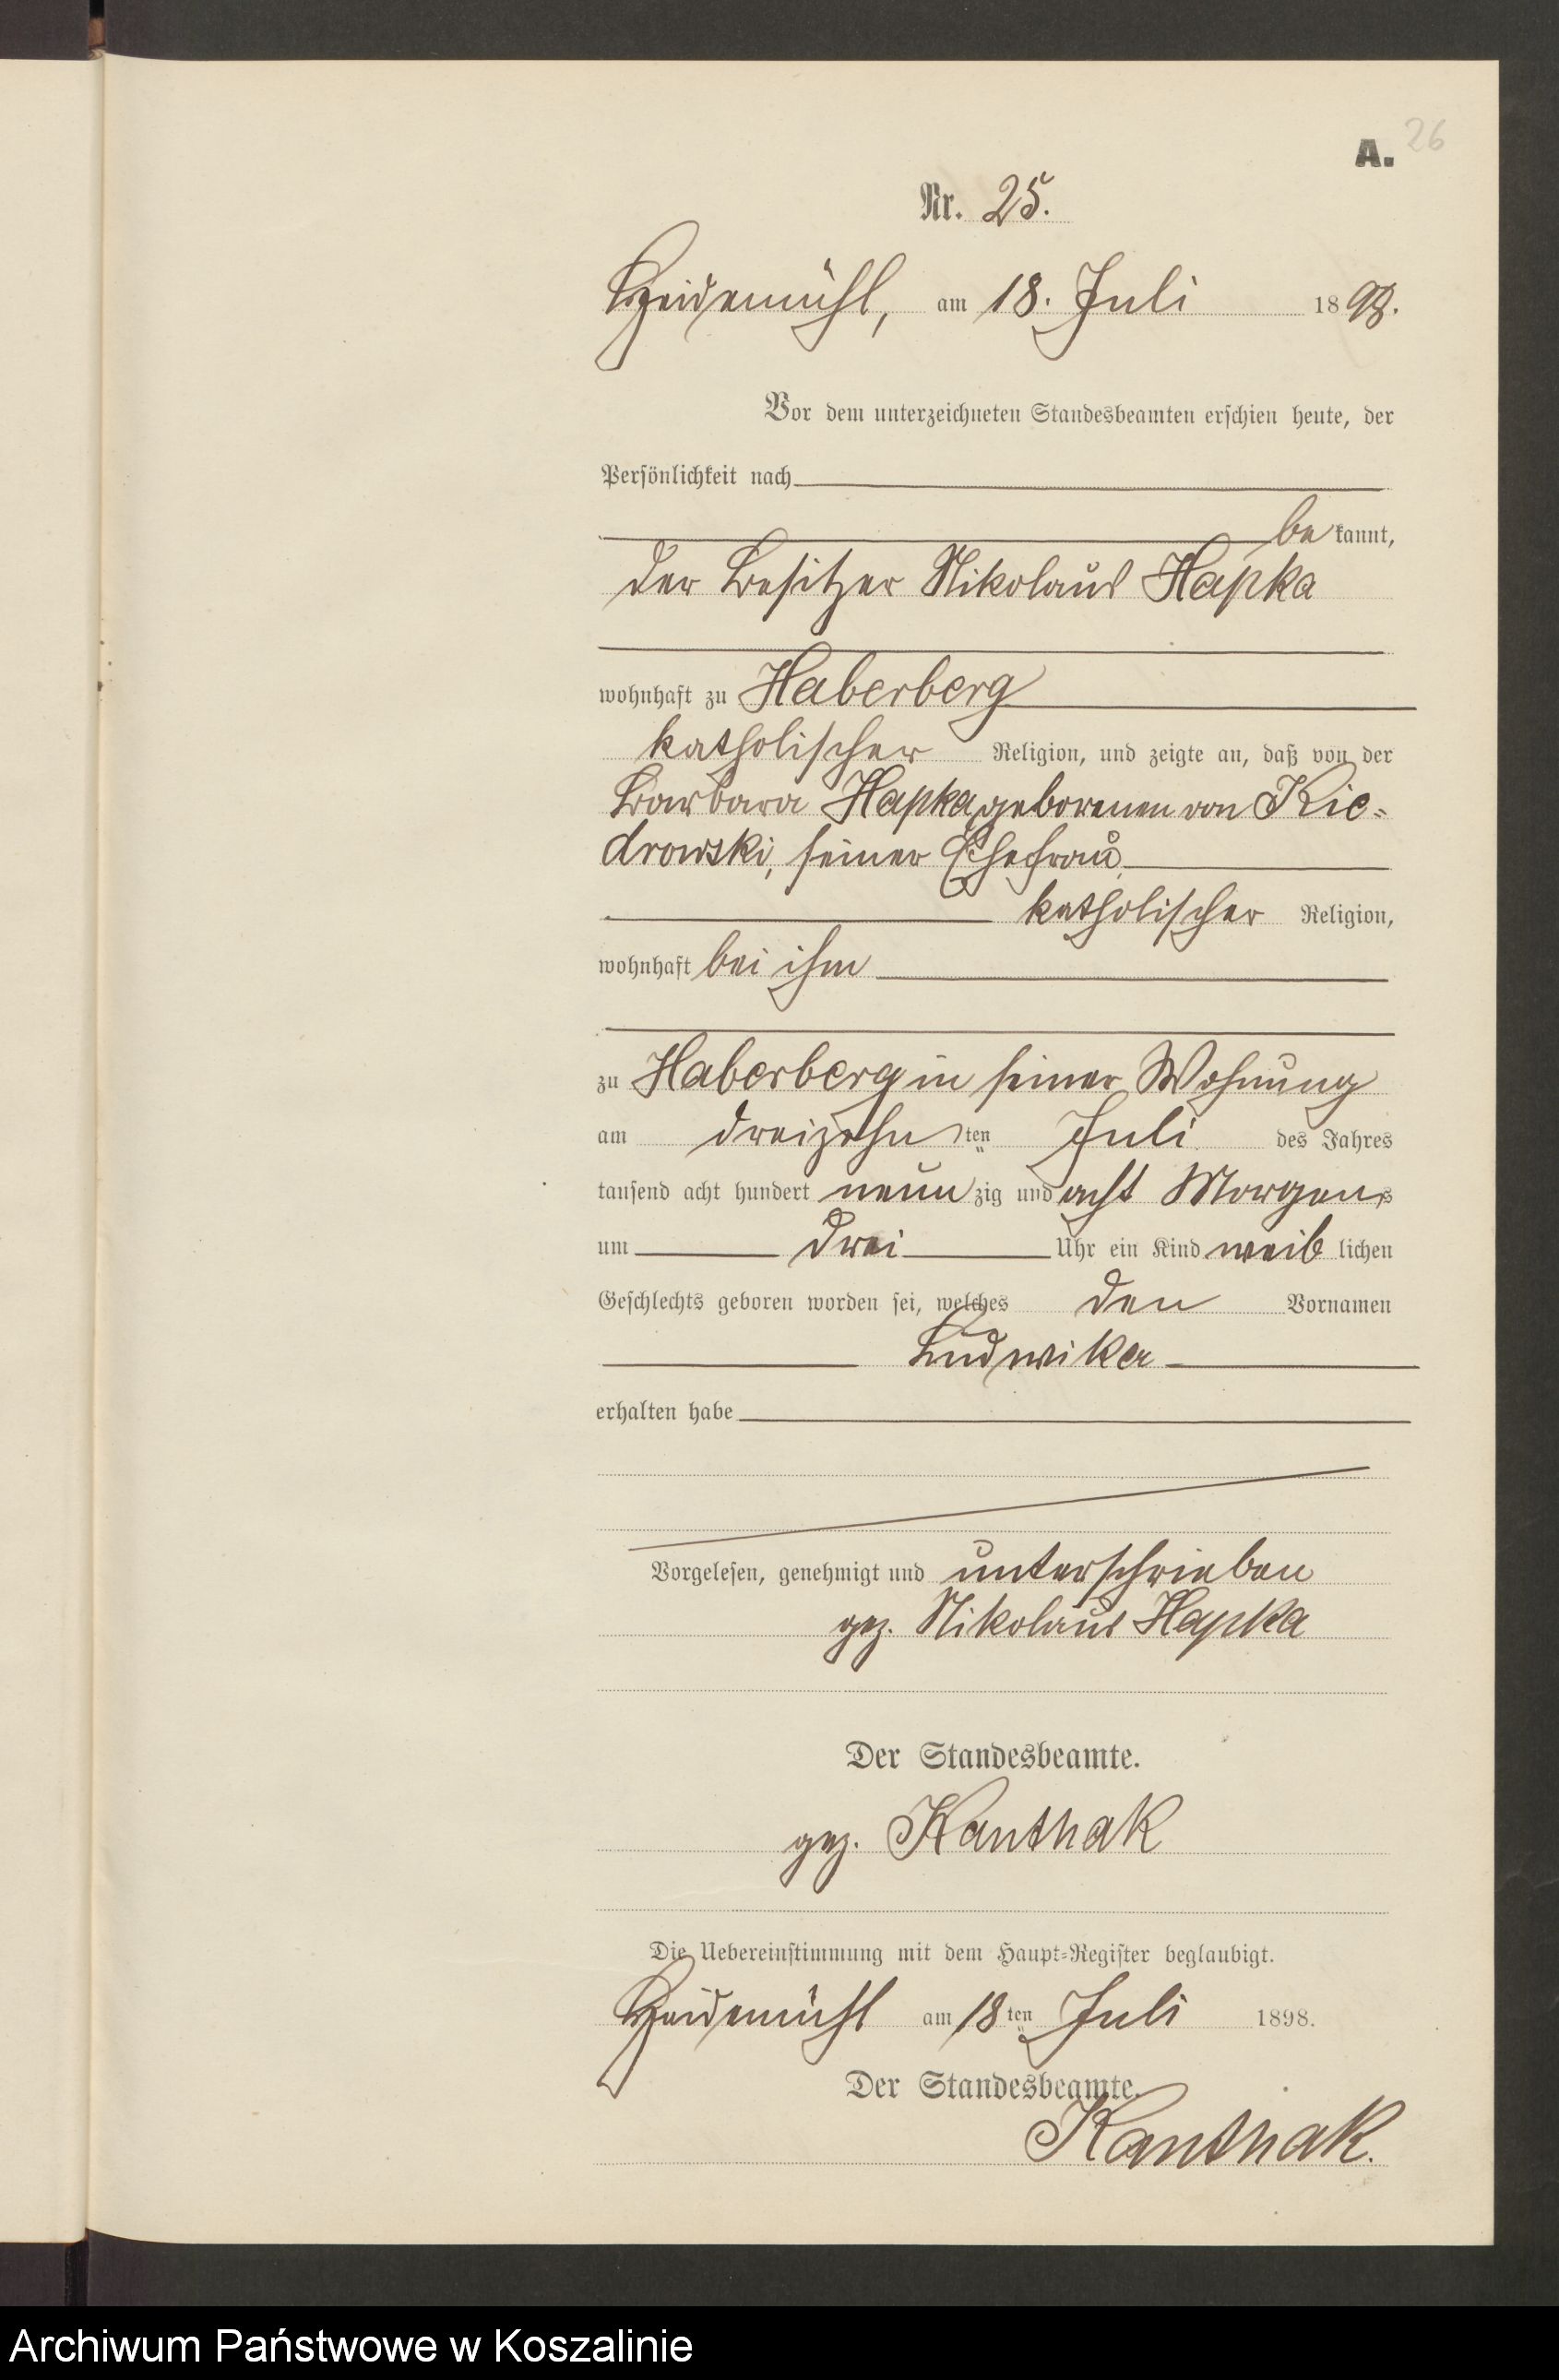 A. 26
Nr. 25.
Heidemühl, am 18. Juli 1898.
Vor dem unterzeichneten Standesbeamten erschien heute, der
Persönlichkeit nach
be kannt,
der Besitzer Nikolaus Hapka
wohnhaft zu Haberberg
katholischer Religion, und zeigte an, daß von der
Barbara Hapka, geborenen von Kie-
drowski, seiner Ehefrau,
katholischer Religion,
wohnhaft bei ihm
zu Haberberg in seiner Wohnung
am dreizehn ten Juli des Jahres
tausend acht hundert neun zig und acht Morgens
um drei Uhr ein Kind weib lichen
Geschlechts geboren worden sei, welches den Vornamen
Ludwika
erhalten habe
Vorgelesen, genehmigt und unterschrieben
gez. Nikolaus Hapka
Der Standesbeamte.
gez. Kanthak
Die Uebereinstimmung mit dem Haupt-Register beglaubigt.
Heidemühl am 18 ten Juli 1898.
Der Standesbeamte.
Kanthak.
Archiwum Państwowe w Koszalinie